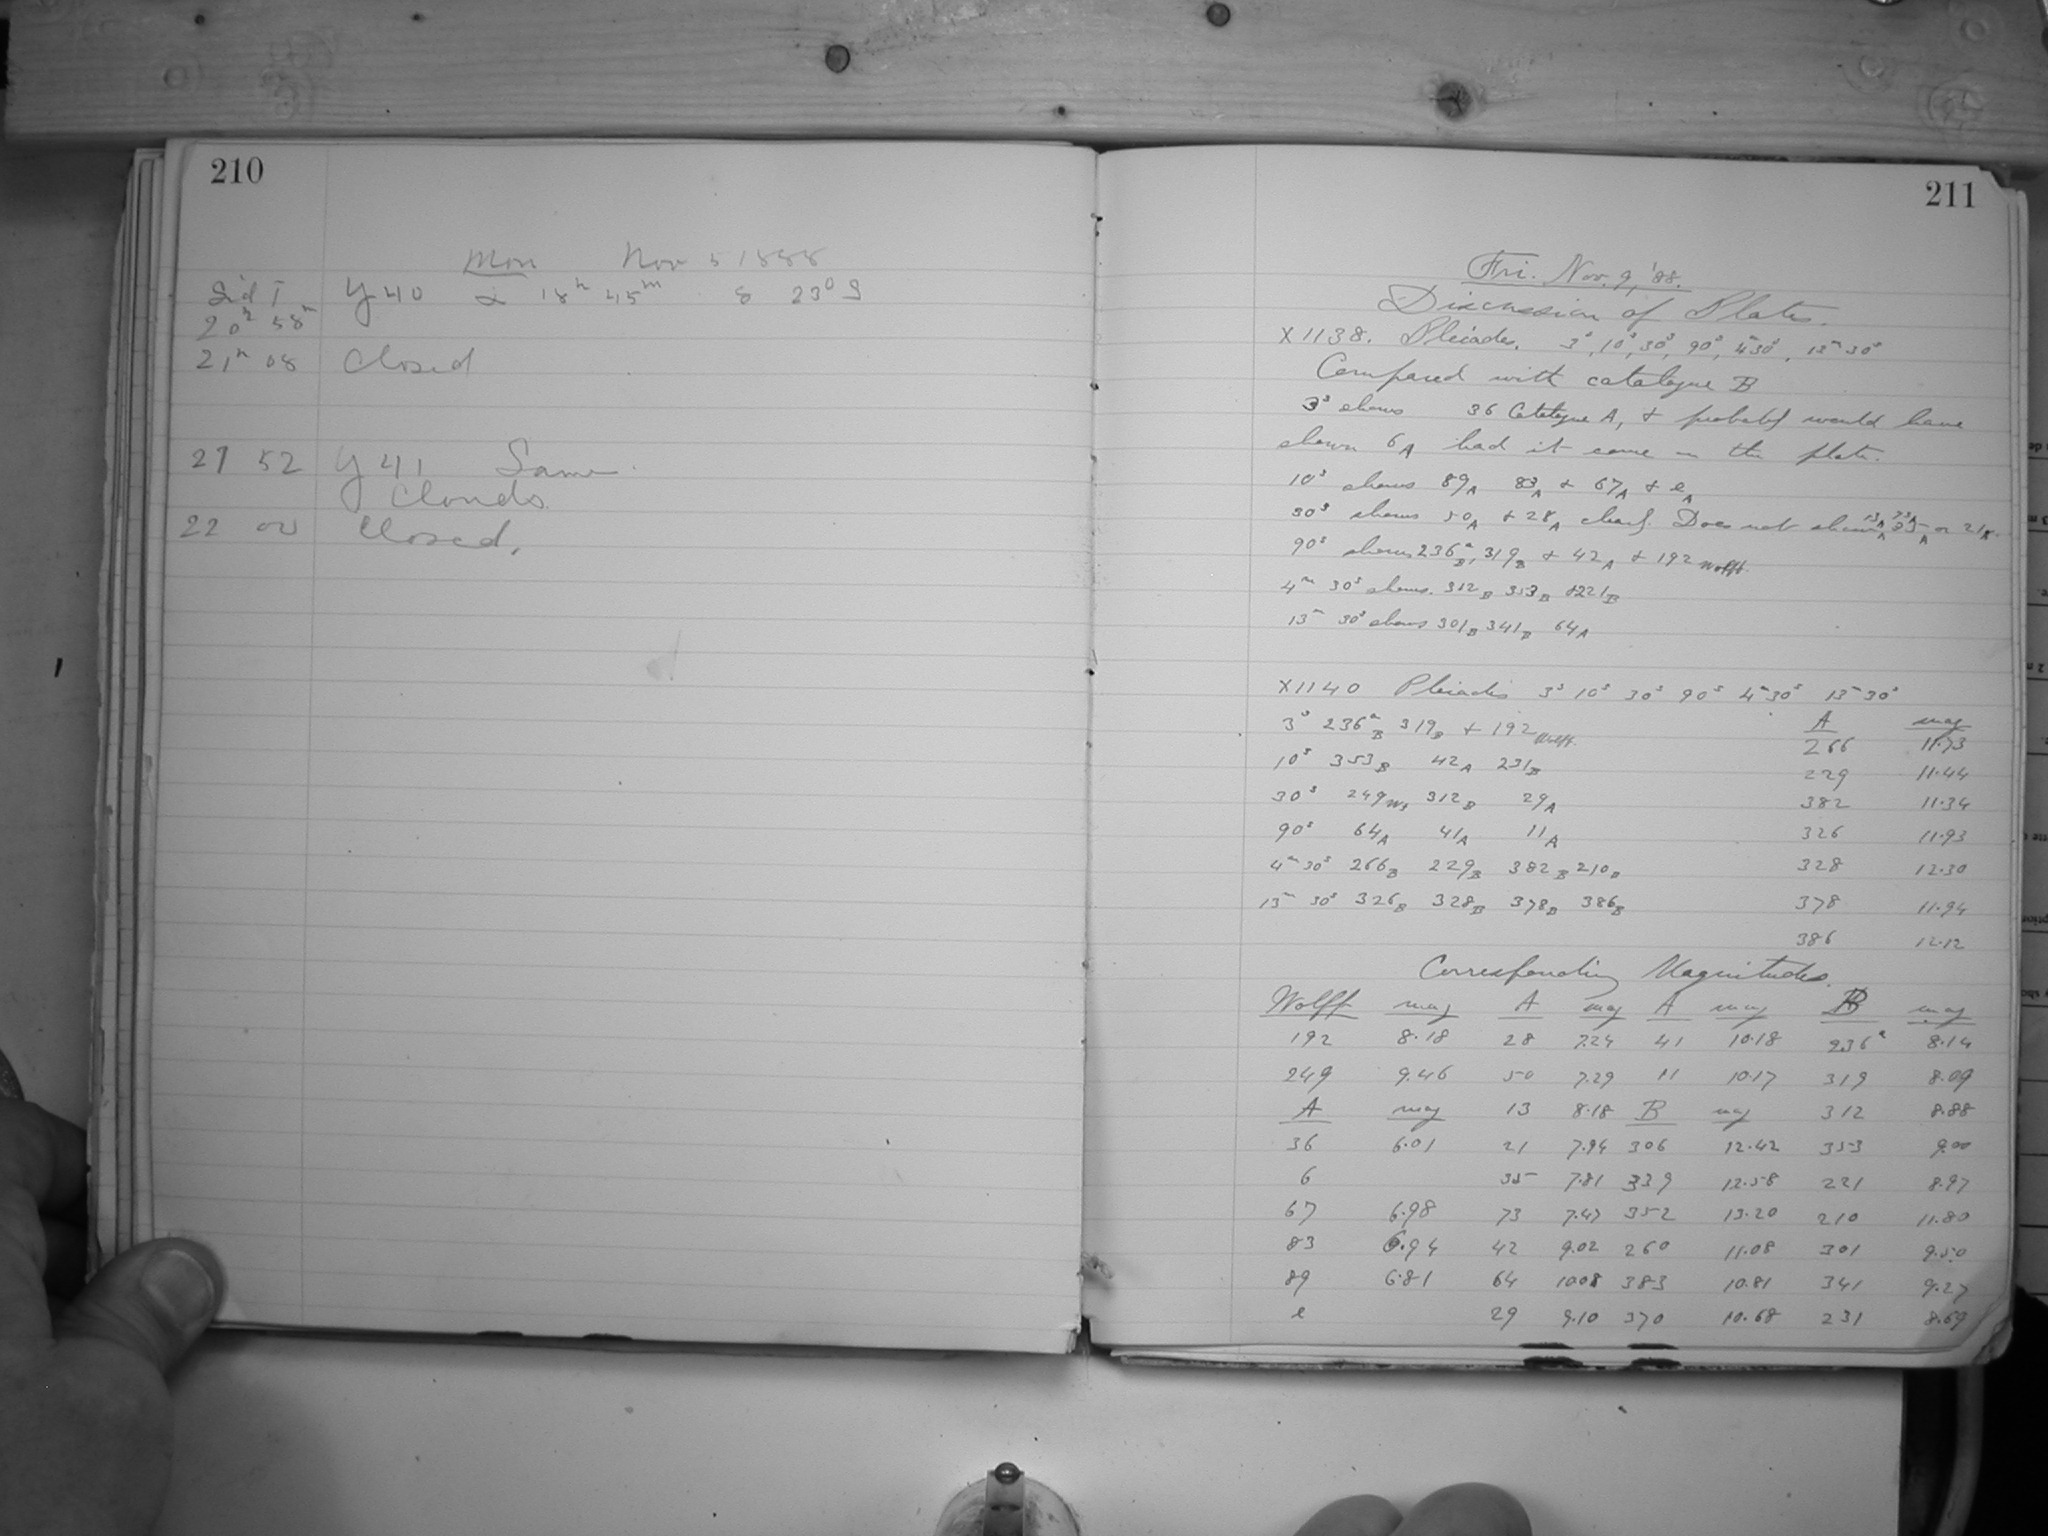 210
Mon Nov 5 1888
Sid T Y 40 α 18h 45m δ 23° S
20h 58m
21h 08 Closed
21 52 Y 41 Same.
Clouds
22 00 Closed.
211
Fri. Nov. 9, '88.
Discussion of Plates.
X 1138. Pleiades. 3s, 10s, 30s, 90s, 4m 30s, 13m 30s
Compared with catalogue B
3s shows 36 Catalogue A, & probably would have
shown 6A had it come on the plate.
10s shows 89A 83A & 67A & eA
30s shows 50A & 28A clearly. Does not show 13A 73A 35A or 21A.
90s shows 236aB, 319B & 42A & 192 Wolff.
4m 30s shows. 312B 353B & 221B
13m 30s shows 301B 341B 64A
X 1140 Pleiades 3s 10s 30s 90s 4m 30s 13m 30s
3s 236aB 319B & 192 Wolff. A mag
266 11.73
10s 353B 42A 231B 229 11.44
30s 249 W, 312B 29A 382 11.34
90s 64A 41A 11A 326 11.93
4m 30s 266B 229B 382B 210B 328 12.30
13m 30s 326B 328B 378B 386B 378 11.94
386 12.12
Corresponding Magnitudes.
Wolff mag A mag A mag B mag
192 8.18 28 7.24 41 10.18 236a 8.14
249 9.46 50 7.29 11 10.17 319 8.09
A mag 13 8.18 B mag 312 8.88
36 6.01 21 7.94 306 12.42 353 9.00
6 35 7.81 339 12.58 221 8.97
67 6.98 73 7.47 352 13.20 210 11.80
83 6.94 42 9.02 260 11.08 301 9.50
89 6.81 64 10.08 383 10.81 341 9.27
e 29 9.10 370 10.68 231 8.69